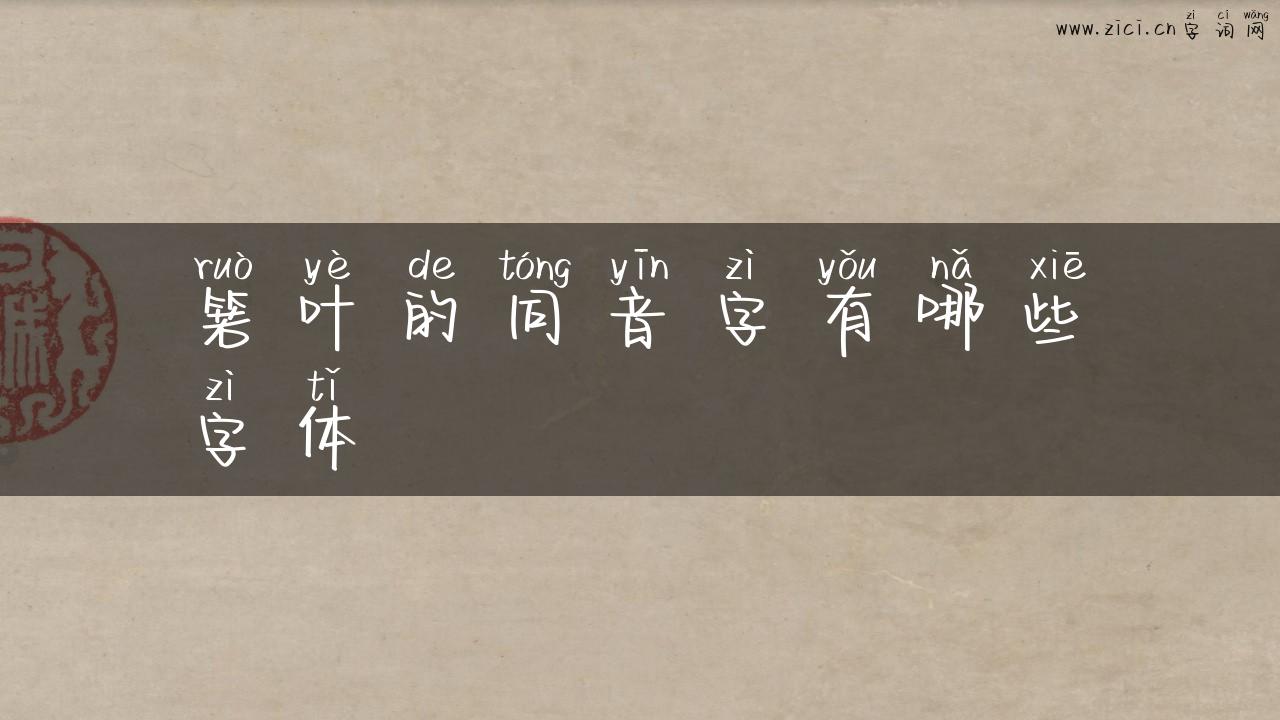 zì cí wǎng
www.zici.cn 字 词 网
ruò yè de tóng yīn zì yǒu nǎ xiē
箬 叶 的 同 音 字 有 哪 些
zì tǐ
字 体